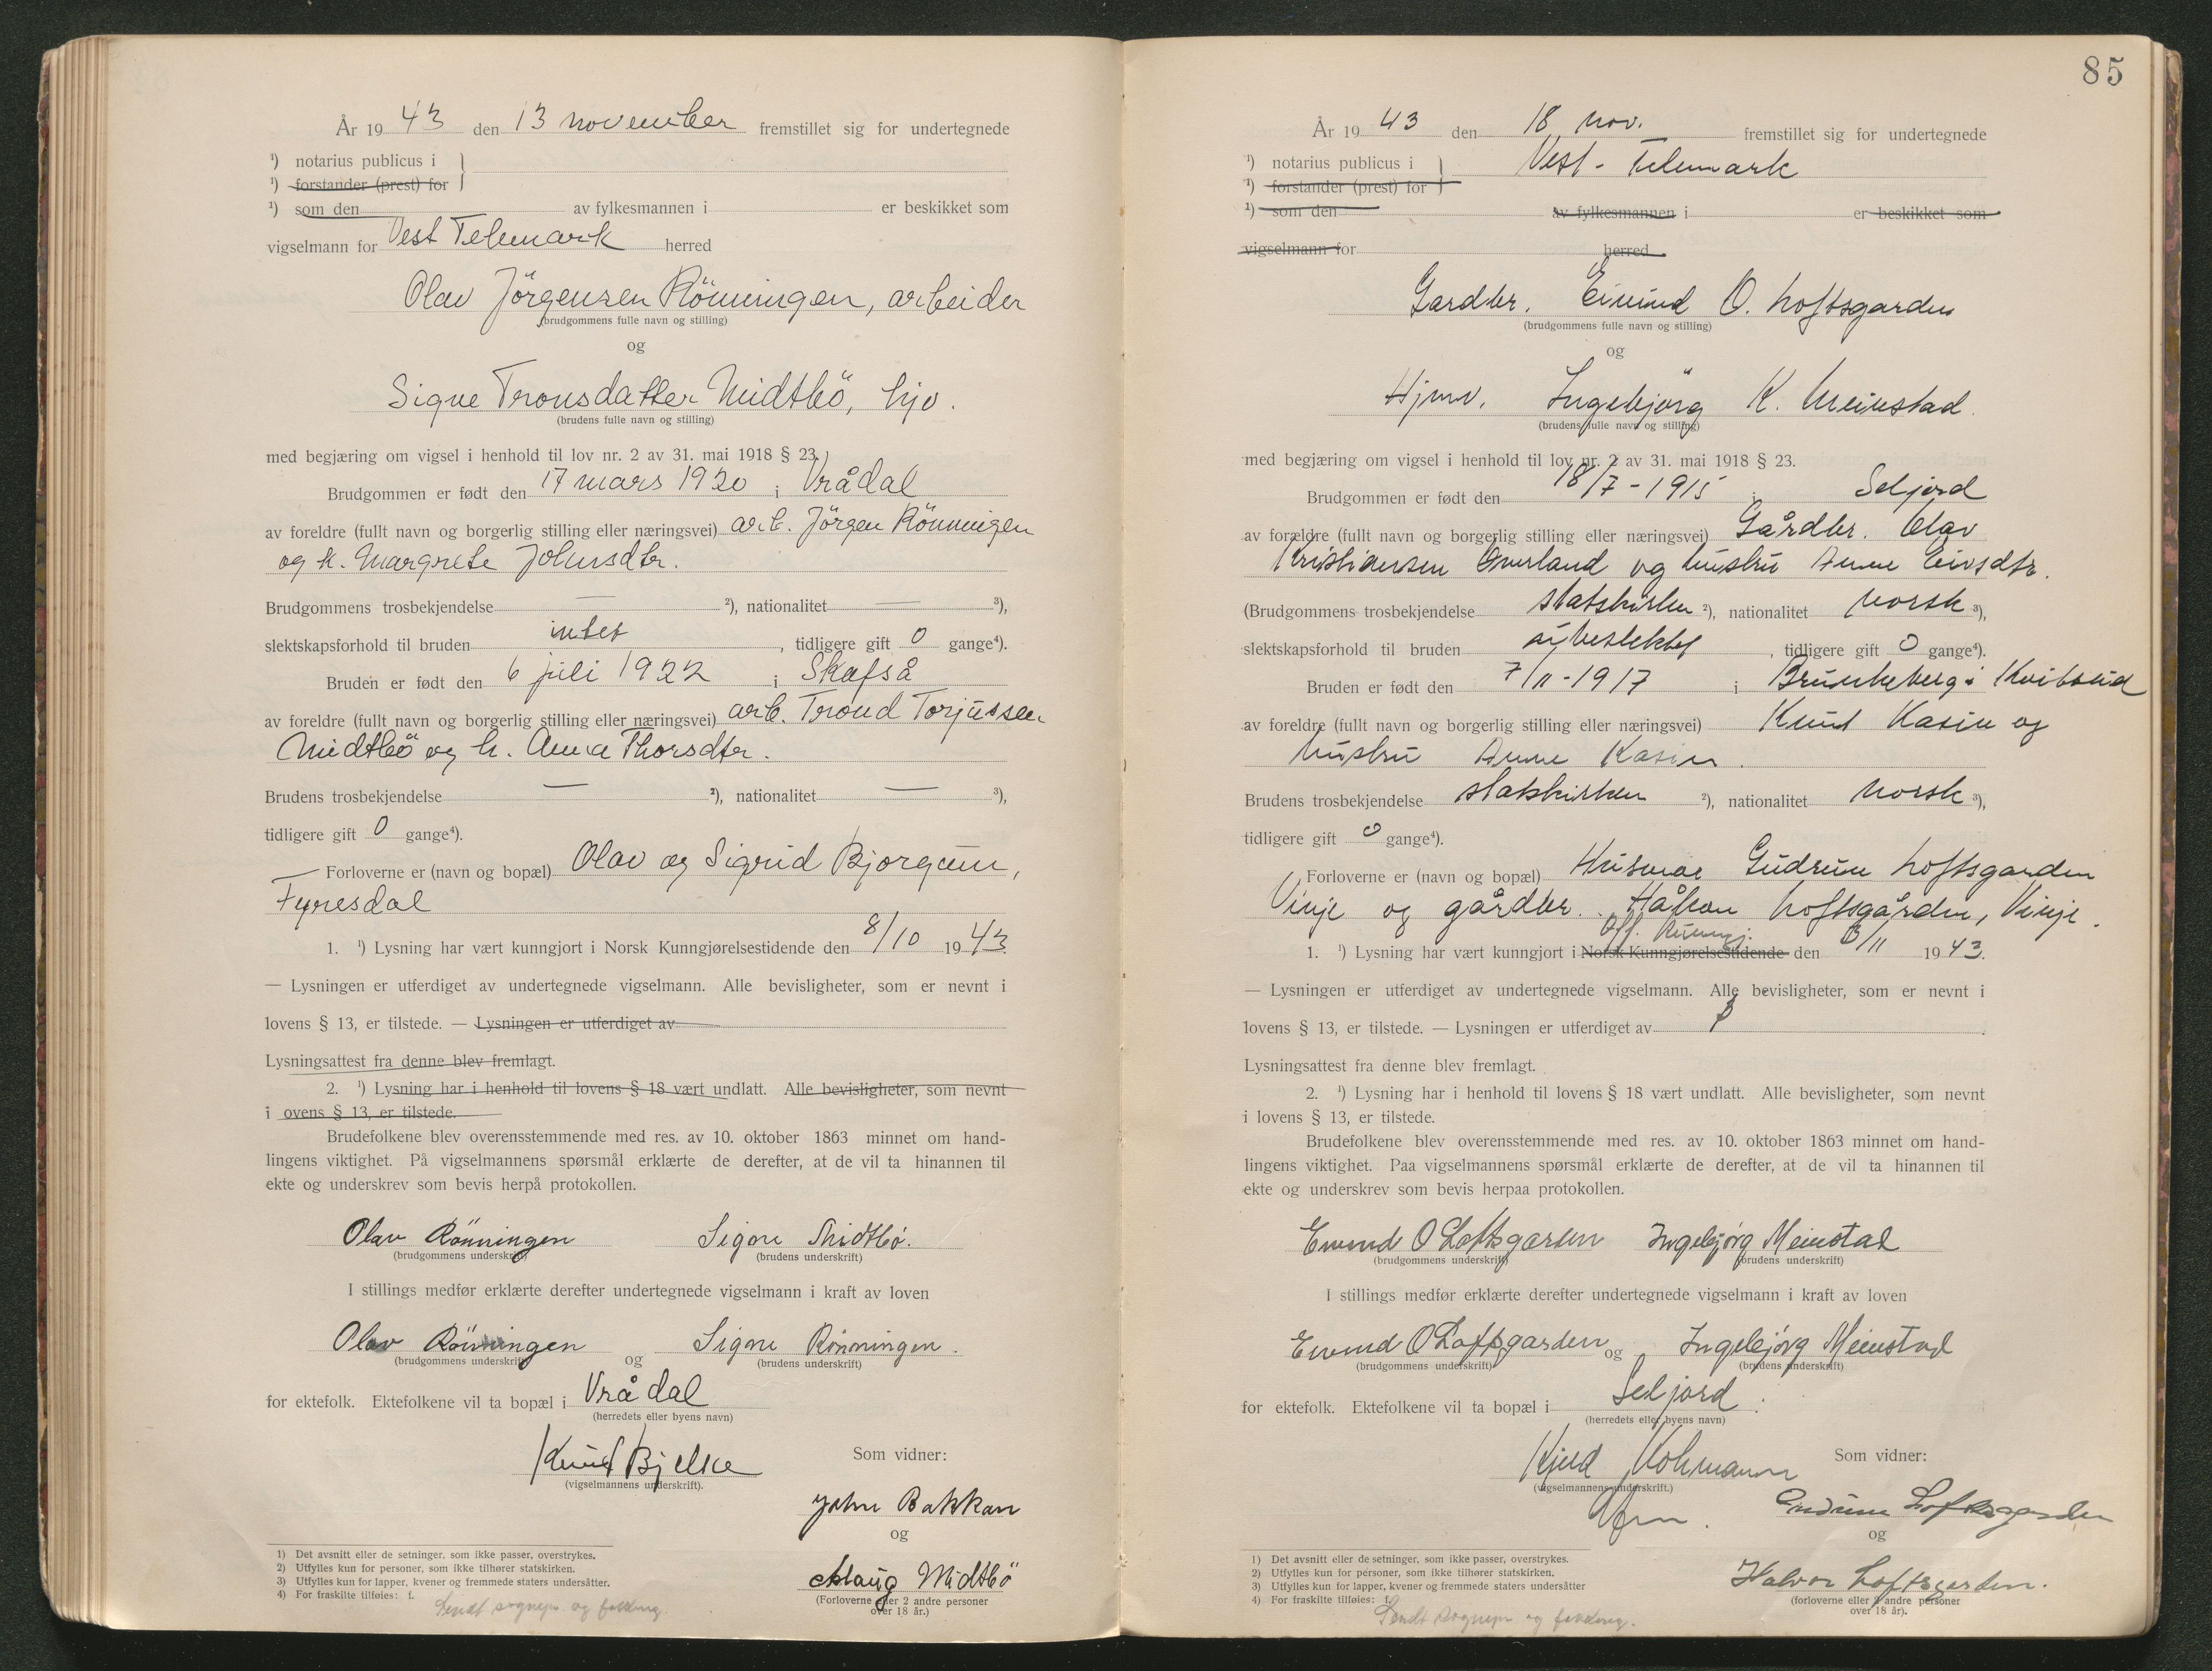 År 1943 den 13 november fremstillet sig for undertegnede
¹) notarius publicus i
¹) forstander (prest) for
¹) som den av fylkesmannen i er beskikket som
vigselmann for Vest Telemark herred
Olav Jörgensen Rönningen, arbeider
(brudgommens fulle navn og stilling)
og
Signe Tronsdatter Midtbö, hjv.
(brudens fulle navn og stilling)
med begjæring om vigsel i henhold til lov nr. 2 av 31. mai 1918 § 23.
Brudgommen er født den 17 mars 1920 i Vrådal
av foreldre (fullt navn og borgerlig stilling eller næringsvei) arb. Jörgen Rönningen
og h. Margrete Johnsdtr.
Brudgommens trosbekjendelse — ²), nationalitet — ³),
slektskapsforhold til bruden intet, tidligere gift 0 gange⁴).
Bruden er født den 6 juli 1922 i Skafså
av foreldre (fullt navn og borgerlig stilling eller næringsvei) arb. Trond Torjussen
Midtbö og h. Anna Thorsdtr.
Brudens trosbekjendelse — ²), nationalitet — ³),
tidligere gift 0 gange⁴).
Forloverne er (navn og bopæl) Olav og Sigrid Bjorgum,
Fyresdal
1. ¹) Lysning har vært kunngjort i Norsk Kunngjørelsestidende den 8/10 1943.
— Lysningen er utferdiget av undertegnede vigselmann. Alle bevisligheter, som er nevnt i
lovens § 13, er tilstede. — Lysningen er utferdiget av
Lysningsattest fra denne blev fremlagt.
2. ¹) Lysning har i henhold til lovens § 18 vært undlatt. Alle bevisligheter, som nevnt
i ovens § 13, er tilstede.
Brudefolkene blev overensstemmende med res. av 10. oktober 1863 minnet om hand-
lingens viktighet. På vigselmannens spørsmål erklærte de derefter, at de vil ta hinannen til
ekte og underskrev som bevis herpå protokollen.
Olav Rönningen Signe Midtbö.
(brudgommens underskrift) (brudens underskrift)
I stillings medfør erklærte derefter undertegnede vigselmann i kraft av loven
Olav Rönningen og Signe Rönningen.
(brudgommens underskrift) (brudens underskrift)
for ektefolk. Ektefolkene vil ta bopæl i Vrådal
(herredets eller byens navn)
Knut Bjelke Som vidner:
(vigselmannens underskrift).
John Bakkan
og
Aslaug Midtbö
(Forloverne eller 2 andre personer
over 18 år.)
1) Det avsnitt eller de setninger, som ikke passer, overstrykes.
2) Utfylles kun for personer, som ikke tilhører statskirken.
3) Utfylles kun for lapper, kvener og fremmede staters undersåtter.
4) For fraskilte tilføies: f.
Sendt sognepr. og
85
År 1943 den 18 nov. fremstillet sig for undertegnede
¹) notarius publicus i Vest-Telemark
¹) forstander (prest) for
¹) som den av fylkesmannen i er beskikket som
vigselmann for herred
Gardbr. Eivind O. Loftsgarden
(brudgommens fulle navn og stilling)
og
Hjmv. Ingebjörg K. Meinstad.
(brudens fulle navn og stilling)
med begjæring om vigsel i henhold til lov nr. 2 av 31. mai 1918 § 23.
Brudgommen er født den 18/7-1915 i Seljord
av forældre (fullt navn og borgerlig stilling eller næringsvei) Gårdbr. Olav
Kristiansen Överland og hustru Anne Eivsdtr.
(Brudgommens trosbekjendelse statskirken ²), nationalitet norsk ³),
slektskapsforhold til bruden ubeslektet, tidligere gift 0 gange⁴).
Bruden er født den 7/11-1917 i Brunkeberg i Kvitseid
av foreldre (fullt navn og borgerlig stilling eller næringsvei) Knut Kasin og
hustru Anne Kasin.
Brudens trosbekjendelse statskirken ²), nationalitet norsk ³),
tidligere gift 0 gange⁴).
Forloverne er (navn og bopæl) Husmor Gudrun Loftsgarden
Vinje og gårdbr. Håkon Loftsgården, Vinje.
Off. Kunngj.
1. ¹) Lysning har vært kunngjort i Norsk Kunngjørelsestidende den 6/11 1943.
— Lysningen er utferdiget av undertegnede vigselmann. Alle bevisligheter, som er nevnt i
lovens § 13, er tilstede. — Lysningen er utferdiget av
Lysningsattest fra denne blev fremlagt.
2. ¹) Lysning har i henhold til lovens § 18 vært undlatt. Alle bevisligheter, som nevnt
i lovens § 13, er tilstede.
Brudefolkene blev overensstemmende med res. av 10. oktober 1863 minnet om hand-
lingens viktighet. Paa vigselmannens spørsmål erklærte de derefter, at de vil ta hinannen til
ekte og underskrev som bevis herpaa protokollen.
Eivind O Loftsgarden Ingebjørg Meinstad
(brudgommens underskrift) (brudens underskrift)
I stillings medfør erklærte derefter undertegnede vigselmann i kraft av loven
Eivind O Loftsgarden og Ingebjørg Meinstad
(brudgommens underskrift) (brudens underskrift)
for ektefolk. Ektefolkene vil ta bopæl i Seljord.
(herredets eller byens navn)
Som vidner:
(vigselmannens underskrift.)
Gudrun Loftsgarden
og
Halvor Loftsgarden.
(forloverne eller 2 andre personer
over 18 år).
1) Det avsnitt eller de setninger, som ikke passer, overstrykes.
2) Utfylles kun for personer, som ikke tilhører statskirken.
3) Utfylles kun for lapper, kvener og fremmede staters undersåtter
4) For fraskilte tilføies: f.
Sendt sognepr. og